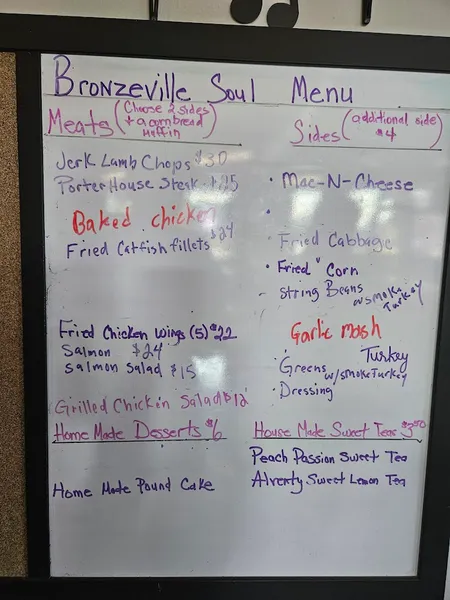 Bronzeville Soul Menu
Meats (Choose 2 sides + a cornbread muffin)
Jerk Lamb Chops $30
Porter House Steak $25
Baked chicken
Fried Catfish fillets $24
Fried Chicken Wings (5) $22
Salmon $24
Salmon Salad $15
Grilled Chicken Salad $12
Home Made Desserts $6
Home Made Pound Cake
Sides (additional side $4)
• Mac-N-Cheese
•
• Fried Cabbage
• Fried Corn
• String Beans w/smoke Turkey
Garlic mash
• Greens w/smoke Turkey
Turkey
• Dressing
House Made Sweet Teas $3.50
Peach Passion Sweet Tea
Alverty Sweet Lemon Tea